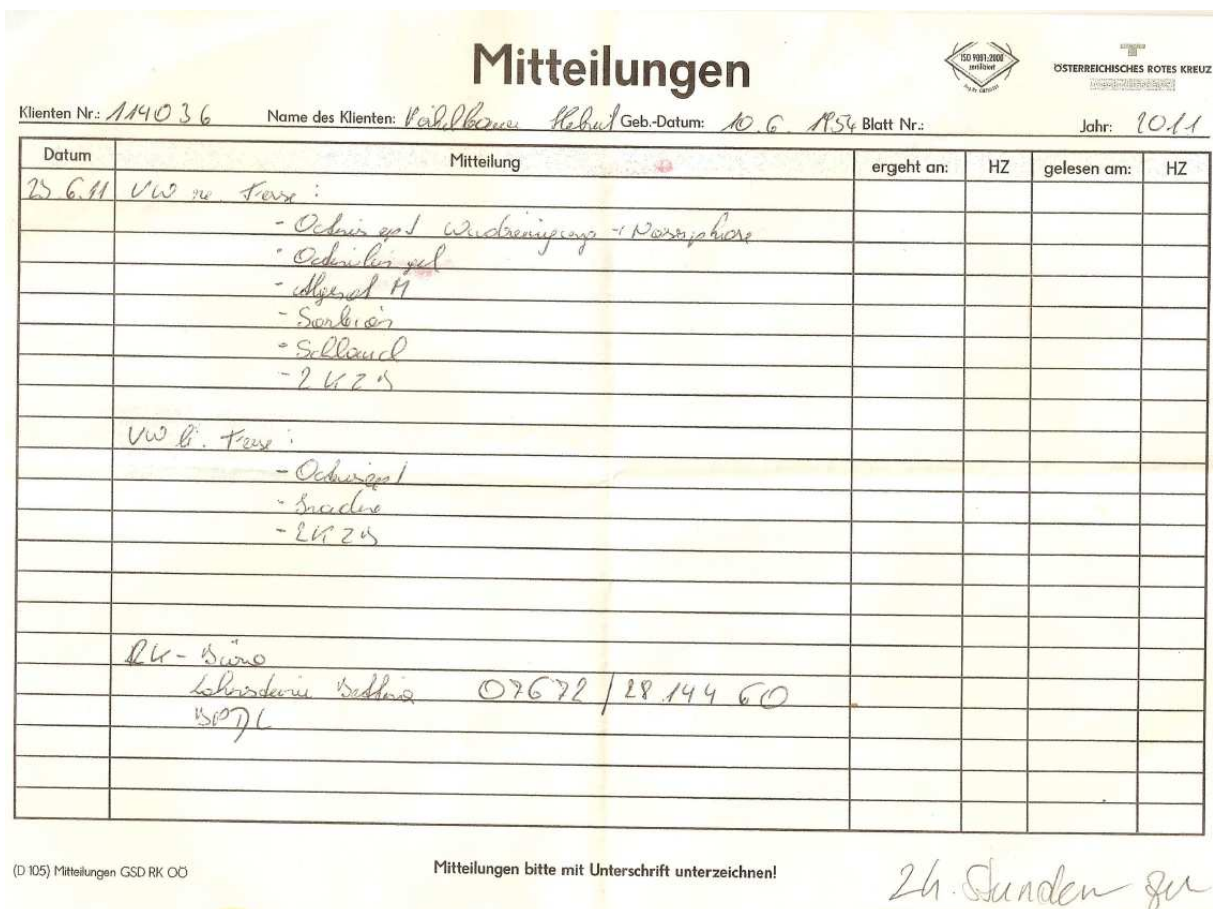 Mitteilungen
ISO 9001:2000
zertifiziert
ÖSTERREICHISCHES ROTES KREUZ
Klienten Nr.: 114036 Name des Klienten: Geb.-Datum: 10.6.1954 Blatt Nr.: Jahr: 2011
Datum Mitteilung ergeht an: HZ gelesen am: HZ
23.6.11 VW re. Ferse:
- Octenisept
- Octenilin gel
- Algenat M
- Sorbion
- Schlauch
- 2KZB
VW li. Ferse:
- Octenisept
- 2KZB
RK-Büro
07672/28 144 60
(D 105) Mitteilungen GSD RK OÖ
Mitteilungen bitte mit Unterschrift unterzeichnen!
24. Stunden